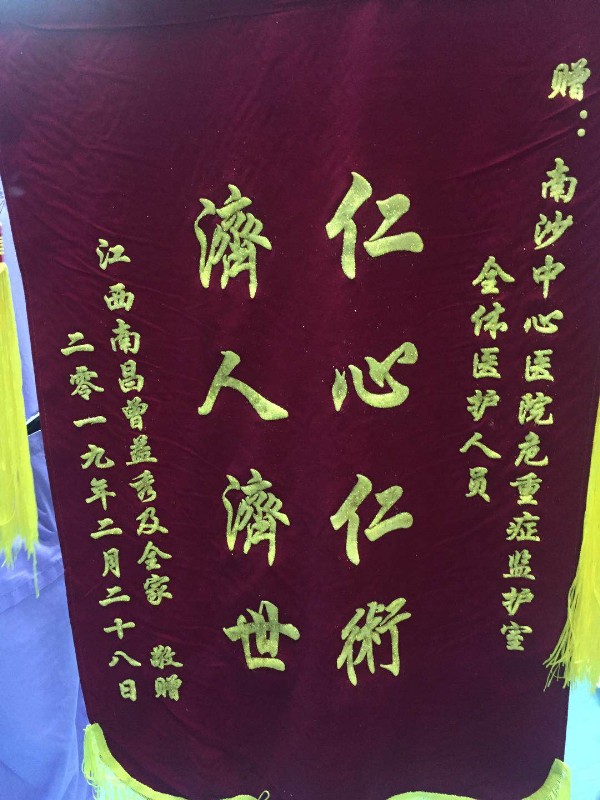 赠：南沙中心医院危重症监护室
全体医护人员
仁心仁術
濟人濟世
江西南昌曾益秀及全家 敬赠
二零一九年二月二十八日